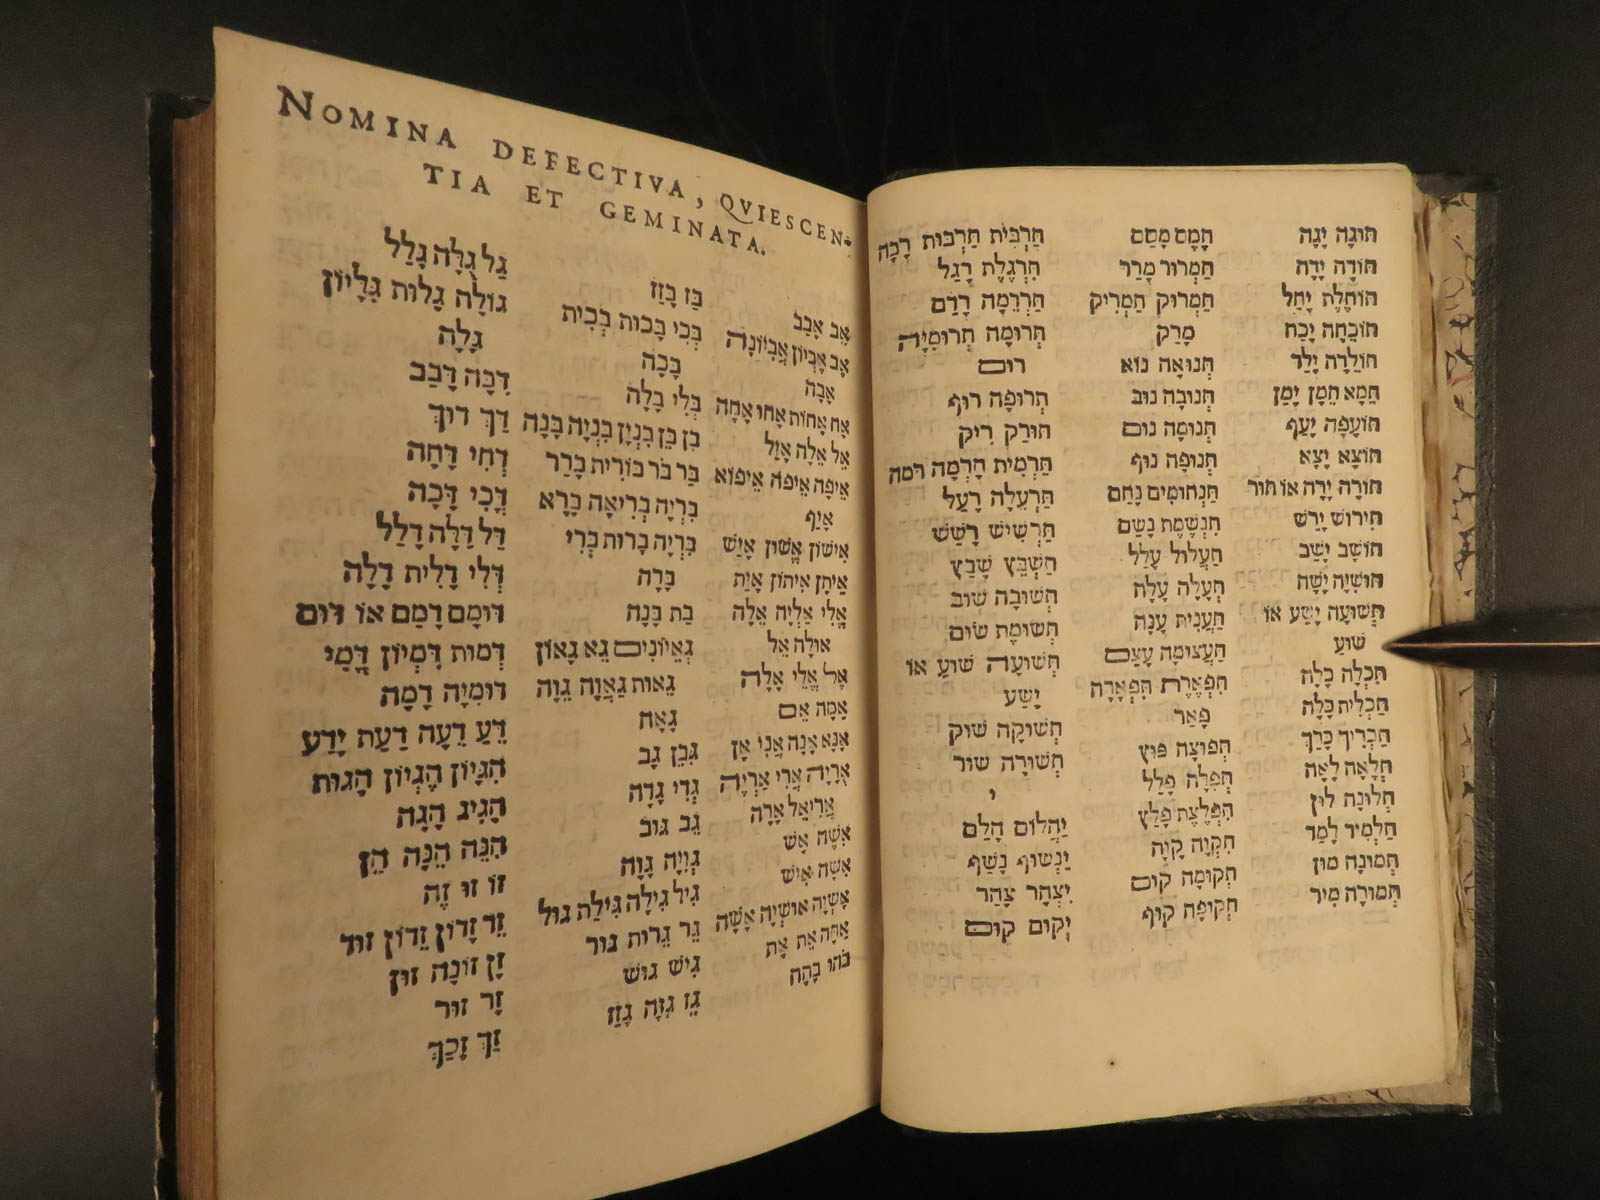 תּוּגָה יָגָה
תּוֹדָה יָדָה
תּוֹחֶלֶת יָחַל
תּוֹכֵחָה יָכַח
תּוֹלָדָה יָלַד
תֵּמָא תֵּמָן יָמַן
תּוֹעָפָה יָעַף
תּוֹצָא יָצָא
תּוֹרָה יָרָה אוֹ תּוּר
תִּירוֹשׁ יָרַשׁ
תּוֹשָׁב יָשַׁב
תּוּשִׁיָּה יָשָׁה
תְּשׁוּעָה יָשַׁע אוֹ
שׁוּעַ
תִּכְלָה כָּלָה
תַּכְלִית כָּלָה
תַּכְרִיךְ כָּרַךְ
תְּלָאָה לָאָה
תְּלוּנָה לוּן
תַּלְמִיד לָמַד
תְּמוּנָה מוּן
תְּמוּרָה מִיר
תֶּמֶס מָסַס
תַּמְרוּר מָרַר
תַּמְרוּק תַּמְרִיק
מָרַק
תְּנוּאָה נוֹא
תְּנוּבָה נוּב
תְּנוּמָה נוּם
תְּנוּפָה נוּף
תַּנְחוּמִים נָחַם
תִּנְשֶׁמֶת נָשַׁם
תַּעֲלוּל עָלַל
תְּעָלָה עָלָה
תַּעֲנִית עָנָה
תַּעֲצוּמָה עָצַם
תִּפְאֶרֶת תִּפְאָרָה
פָּאַר
תְּפוּצָה פּוּץ
תְּפִלָּה פָּלַל
תִּפְלֶצֶת פָּלַץ
תִּקְוָה קָוָה
תְּקוּמָה קוּם
תְּקוּפָה קוּף
תַּרְבִּית תַּרְבּוּת רָבָה
תִּרְגֶּלֶת רָגַל
תַּרְדֵּמָה רָדַם
תְּרוּמָה תְּרוּמִיָּה
רוּם
תְּרוּפָה רוּף
תּוֹרַק רִיק
תַּרְמִית תָּרְמָה רמה
תַּרְעֵלָה רָעַל
תַּרְשִׁישׁ רָשַׁשׁ
תַּשְׁבֵּץ שָׁבַץ
תְּשׁוּבָה שׁוּב
תְּשׂוּמֶת שׂוּם
תְּשׁוּעָה שׁוּעַ אוֹ
יָשַׁע
תְּשׁוּקָה שׁוּק
תְּשׁוּרָה שׁוּר
י
יַהֲלוֹם הָלַם
יַנְשׁוּף נָשַׁף
יִצְהָר צָהַר
יְקוּם קוּם
NOMINA DEFECTIVA, QVIESCEN-
TIA ET GEMINATA.
אֵב אָבַב
אָב אֶבְיוֹן אֲבִיּוֹנָה
אָבָה
אָח אָחוֹת אָחוּ אָחָה
אֵל אֵלָה אָזַל
אֵיפָה אֵיפֹה אֵיפוֹא
אָיַף
אִישׁוֹן אֱשׁוּן אָיַשׁ
אֵיתָן אִיתוֹן אָיַת
אֱלִי אַלְיָה אֵלָה
אוּלָה אֵל
אֵל אֱלֵי אָלָה
אָמָה אֵם
אָנָּא אָנָה אֲנִי אָן
אֻרְיָה אֲרִי אַרְיֵה
אֲרִיאֵל אָרָה
אִשֶּׁה אֵשׁ
אִשָּׁה אִישׁ
אָשְׁיָה אוּשְׁיָה אָשָׁה
אַתָּה אֵת אַתְּ
בֹּהוּ בָּהָה
בַּז בָּזַז
בְּכִי בָּכוּת בְּכִית
בָּכָה
בְּלִי בָּלָה
בִּן בֵּן בִּנְיָן בִּנְיָה בָּנָה
בַּר בֹּר בּוֹרִית בָּרַר
בְּרִיָּה בְּרִיאָה בָּרָא
בִּרְיָה בָּרוּת בְּרִי
בָּרָה
בַּת בָּנָה
גְּאֵיוֹנִים גֵּא גָּאוֹן
גֵּאוּת גַּאֲוָה גֵּוָה
גָּאָה
גִּבֵּן גַּב
גְּדִי גָּדָה
גֵּב גּוּב
גְּוִיָּה גָּוָה
גִּיל גִּילָה גִּילַת גּוּל
גֵּר גֵּרוּת גּוּר
גִּישׁ גּוּשׁ
גֵּז גִּזָּה גָּזַז
גַּל גֻּלָּה גָּלַל
גּוֹלָה גָּלוּת גִּלָּיוֹן
גָּלָה
דִּבָּה דָּבַב
דַּךְ דּוּךְ
דְּחִי דָּחָה
דֳּכִי דָּכָה
דַּל דַּלָּה דָּלַל
דְּלִי דָּלִית דָּלָה
דּוּמָם דָּמַם אוֹ דּוּם
דְּמוּת דִּמְיוֹן דֳּמִי
דּוּמִיָּה דָּמָה
דֵּעַ דֵּעָה דַּעַת יָדַע
הִגָּיוֹן הֶגְיוֹן הָגוּת
הָגִיג הָגָה
הִנֵּה הֵנָּה הֵן
זוֹ זוּ זֶה
זֵד זָדוֹן זֵדוֹן זוּד
זַן זוֹנָה זוּן
זָר זוּר
זַךְ זָכַךְ